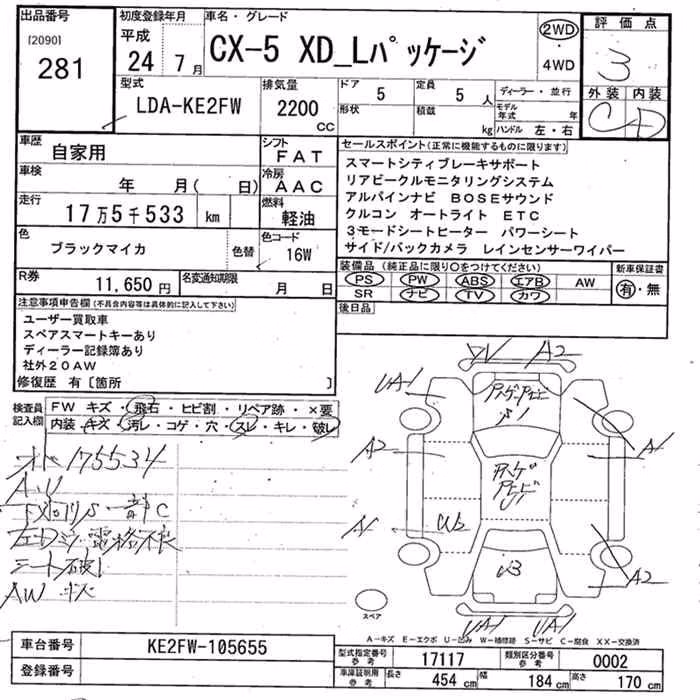 出品番号
[2090]
281
初度登録年月
平成
24年7月
車名・グレード
CX-5 XD_Lパッケージ
2WD
4WD
評価点
3
外装 内装
C D
型式
LDA-KE2FW
排気量
2200
CC
ドア 5
形状
定員 5人
積載 kg
ディーラー・並行
モデル年式 年
ハンドル 左・右
車歴 自家用
シフト FAT
車検 年 月( 日)
冷房 AAC
走行 17万5千533 km
燃料 軽油
色 ブラックマイカ
色替
色コード 16W
R券 11,650円
名変通知期限 月 日
セールスポイント(正常に機能するものに限ります)
スマートシティブレーキサポート
リアビークルモニタリングシステム
アルパインナビ BOSEサウンド
クルコン オートライト ETC
3モードシートヒーター パワーシート
サイド/バックカメラ レインセンサーワイパー
装備品(純正品に限り○をつけてください)
PS PW ABS エアB AW
SR ナビ TV カワ
新車保証書
有・無
後日品
注意事項申告欄(不具合内容等は具体的に記入して下さい)
ユーザー買取車
スペアスマートキーあり
ディーラー記録簿あり
社外20AW
修復歴 有[箇所 ]
検査員記入欄
FW キズ・飛石・ヒビ割・リペア跡・×要
内装・キズ・汚レ・コゲ・穴・スレ・キレ・破レ
175534
AU
下廻りS 一部C
左Dミラー電格不良
シート破れ
AW キズ
A2
UA1
A1
A2
A1
A2
U2
UA1
UA1
スペア
A-キズ E-エクボ U-凹み W-補修跡 S-サビ C-腐食 XX-交換済
車台番号 KE2FW-105655
登録番号
型式指定番号 参考 17117
類別区分番号 参考 0002
車庫証明用 参考 長さ 454cm 幅 184cm 高さ 170cm